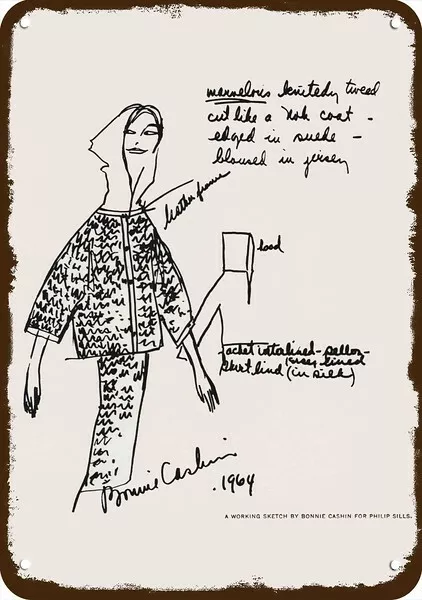 marvelous knitedy tweed
cut like a Noh coat -
edged in suede -
bloused in jersey
leather frame
hood
Jacket interlined - pellon -
lined
Skirt lined (in silk)
Bonnie Cashin
.1964
A WORKING SKETCH BY BONNIE CASHIN FOR PHILIP SILLS.